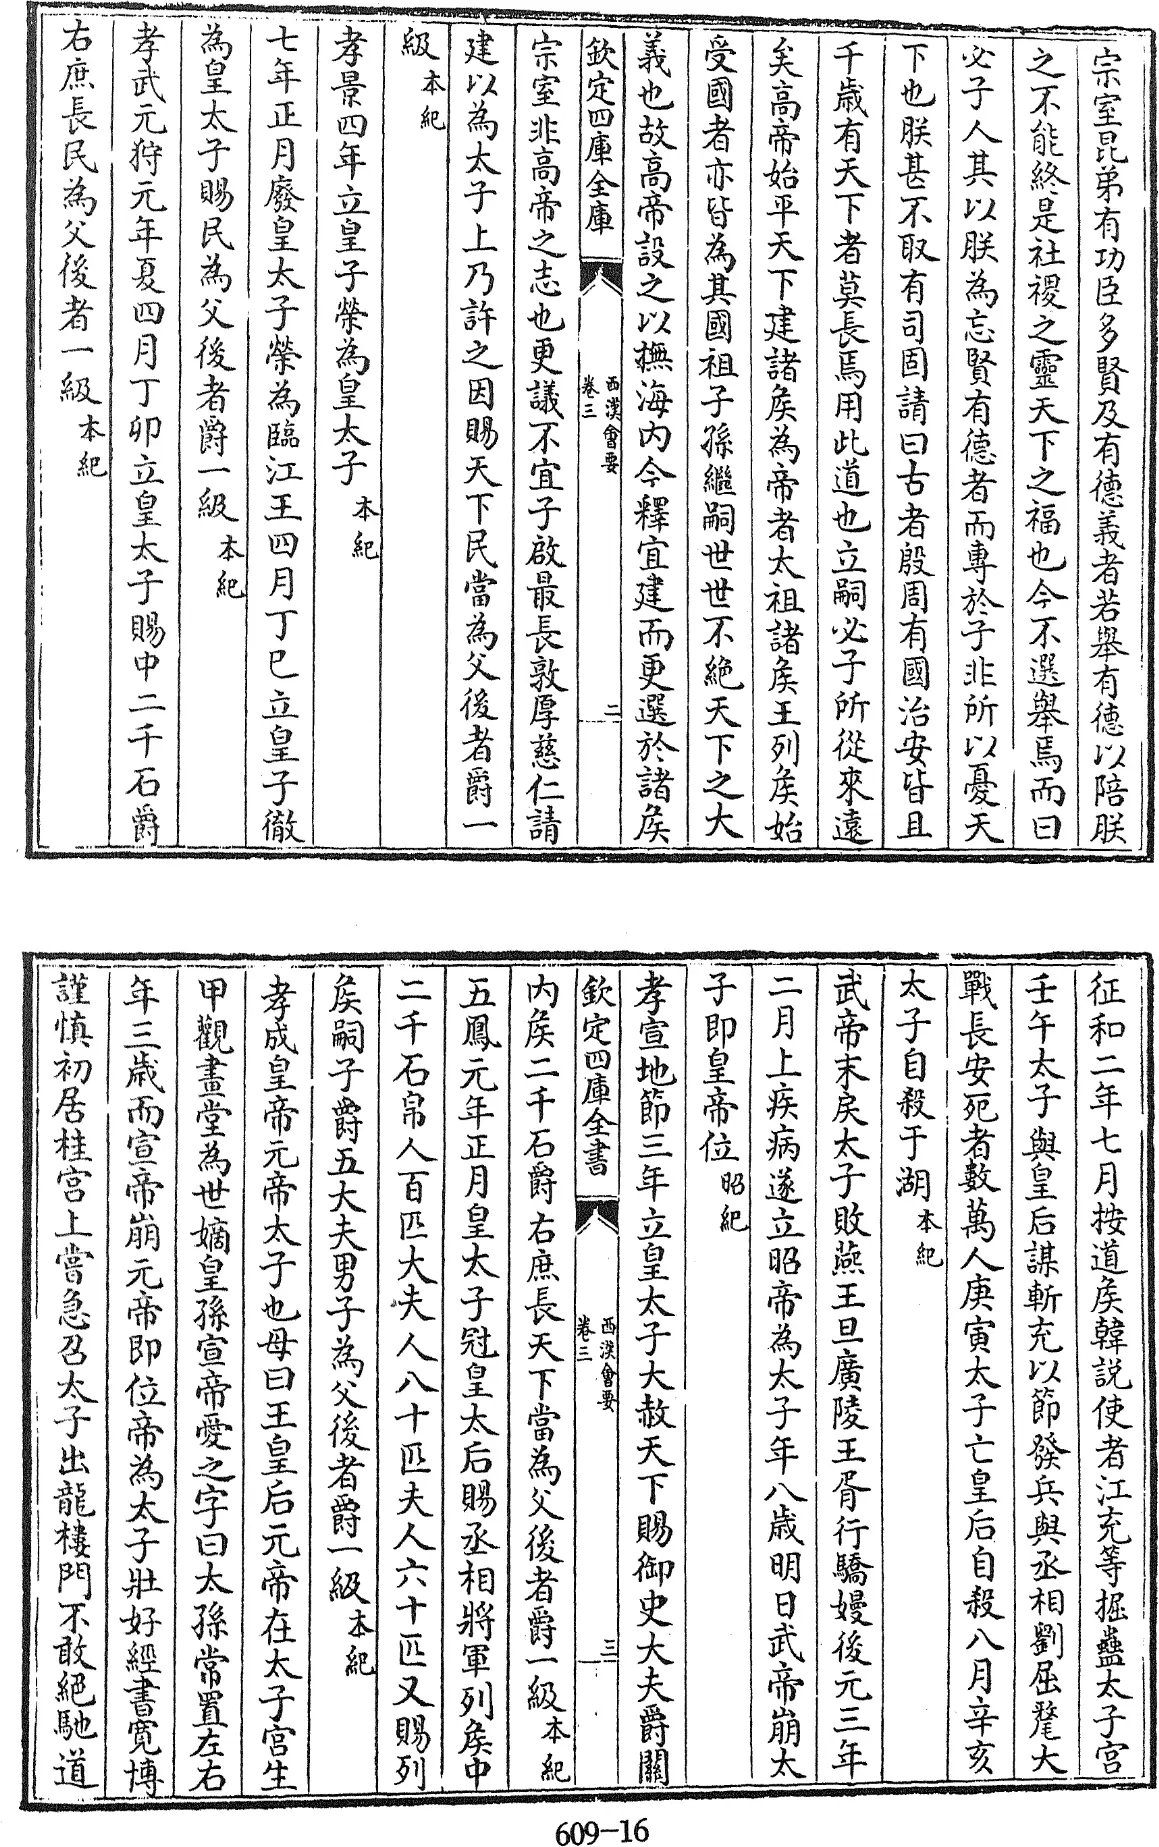 宗室昆弟有功臣多賢及有德義者若舉有德以陪朕
之不能終是社稷之靈天下之福也今不選舉焉而曰
必子人其以朕為忘賢有德者而專於子非所以憂天
下也朕甚不取有司固請曰古者殷周有國治安皆且
千歲有天下者莫長焉用此道也立嗣必子所從來遠
矣高帝始平天下建諸侯為帝者太祖諸侯王列侯始
受國者亦皆為其國祖子孫繼嗣世世不絶天下之大
義也故高帝設之以撫海内今釋宜建而更選於諸侯
欽定四庫全庫
西漢會要
卷三
二
宗室非高帝之志也更議不宜子啟最長敦厚慈仁請
建以為太子上乃許之因賜天下民當為父後者爵一
級本紀
孝景四年立皇子榮為皇太子本紀
七年正月廢皇太子榮為臨江王四月丁巳立皇子徹
為皇太子賜民為父後者爵一級本紀
孝武元狩元年夏四月丁卯立皇太子賜中二千石爵
右庶長民為父後者一級本紀
征和二年七月按道侯韓説使者江充等掘蠱太子宫
壬午太子與皇后謀斬充以節發兵與丞相劉屈氂大
戰長安死者數萬人庚寅太子亡皇后自殺八月辛亥
太子自殺于湖本紀
武帝末戾太子敗燕王旦廣陵王胥行驕嫚後元三年
二月上疾病遂立昭帝為太子年八歲明日武帝崩太
子即皇帝位昭紀
孝宣地節三年立皇太子大赦天下賜御史大夫爵關
欽定四庫全書
西漢會要
卷三
三
内侯二千石爵右庶長天下當為父後者爵一級本紀
五鳳元年正月皇太子冠皇太后賜丞相將軍列侯中
二千石帛人百匹大夫人八十匹夫人六十匹又賜列
侯嗣子爵五大夫男子為父後者爵一級本紀
孝成皇帝元帝太子也母曰王皇后元帝在太子宫生
甲觀畫堂為世嫡皇孫宣帝愛之字曰太孫常置左右
年三歲而宣帝崩元帝即位帝為太子壯好經書寛博
謹慎初居桂宫上嘗急召太子出龍樓門不敢絕馳道
609-16